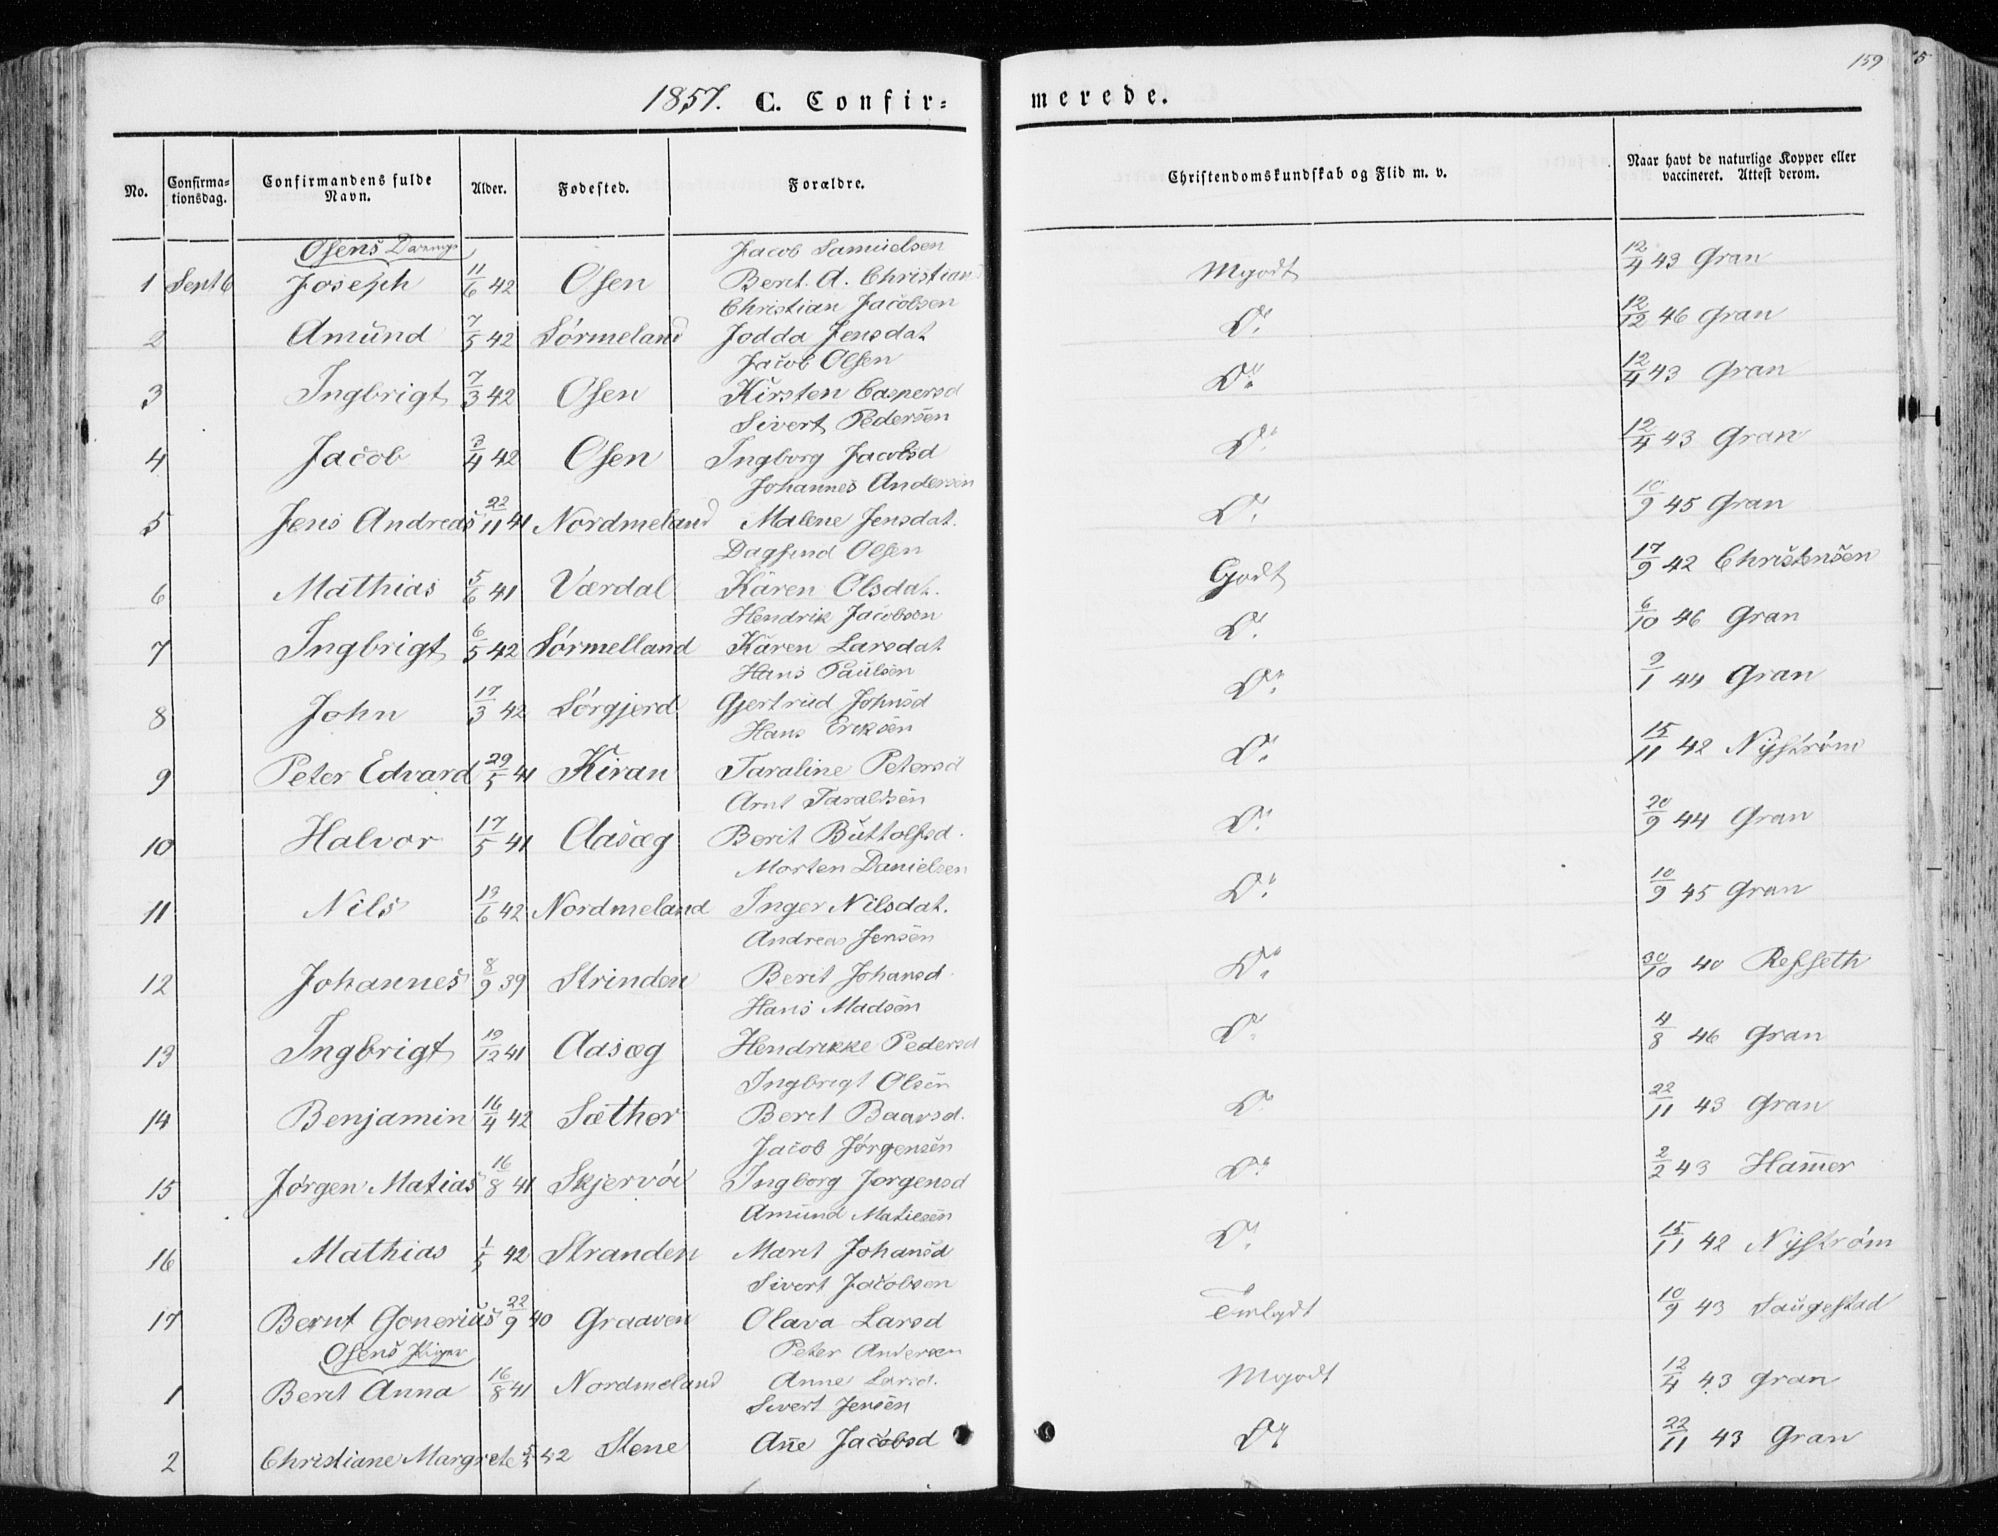 159
1857. C. Confir= merede.
No. Confirma= tionsdag. Confirmandens fulde Navn. Alder. Fødested. Forældre. Christendomskundskab og Flid m. v. Naar havt de naturlige Kopper eller vaccineret. Attest derom.
Osens Drenge Jacob Samuelsen
1 Sept 6 Joseph 11/6 42 Osen Berit. A. Christian Mgodt 12/4 43 Gran
Christian Jacobsen
2 Amund 7/5 42 Sørmeland Jodda Jensdat Do 12/12 46 Gran
Jacob Olsen
3 Ingbrigt 7/3 42 Osen Kirsten Caspersd Do 12/4 43 Gran
Sivert Pedersen
4 Jacob 3/4 42 Osen Ingborg Jacobsd Do 12/4 43 Gran
Johannes Andersen
5 Jens Andreas 22/11 41 Nordmeland Malene Jensdat. Do 10/9 45 Gran
Dagfind Olsen
6 Mathias 5/6 41 Værdal Karen Olsdat. Godt 17/9 42 Christensen
Hendrik Jacobsen
7 Ingbrigt 6/5 42 Sørmelland Karen Larsdat Do 6/10 46 Gran
Hans Paulsen
8 John 17/3 42 Sørgjerd Gjertrud Johnsd Do 9/1 44 Gran
Hans Eriksen
9 Peter Edvard 29/5 41 Kiran Taraline Petersd Do 15/11 42 Nystrøm
Arnt Taraldsen
10 Halvor 17/5 41 Aasæg Berit Buttolfsd. Do 20/9 44 Gran
Morten Danielsen
11 Nils 19/6 42 Nordmeland Inger Nilsdat. Do 10/9 45 Gran
Andreas Jensen
12 Johannes 8/9 39 Strinden Berit Johansd. Do 30/10 40 Refseth
Hans Madsen
13 Ingbrigt 19/12 41 Aasæg Hendrikke Pedersd Do 4/8 46 Gran
Ingbrigt Olsen
14 Benjamin 16/4 42 Sæther Berit Baarsd. Do 22/11 43 Gran
Jacob Jørgensen
15 Jørgen Matias 16/8 41 Skjervøi Ingborg Jørgensd Do 2/2 43 Hammer
Amund Matiesen
16 Mathias 1/5 42 Stranden Marit Johansd Do 15/11 42 Nystrøm
Sivert Jacobsen
17 Bernt Gonerius 22/9 40 Graaven Olava Larsd 10/9 43 Saugestad
Osens Piger Peter Andersen
1 Berit Anna 16/8 41 Nordmeland Anne Larsd. Mgodt 12/4 43 Gran
Sivert Jensen
2 Christiane Margrete 5/5 42 Stene Anne Jacobsd Do 22/11 43 Gran